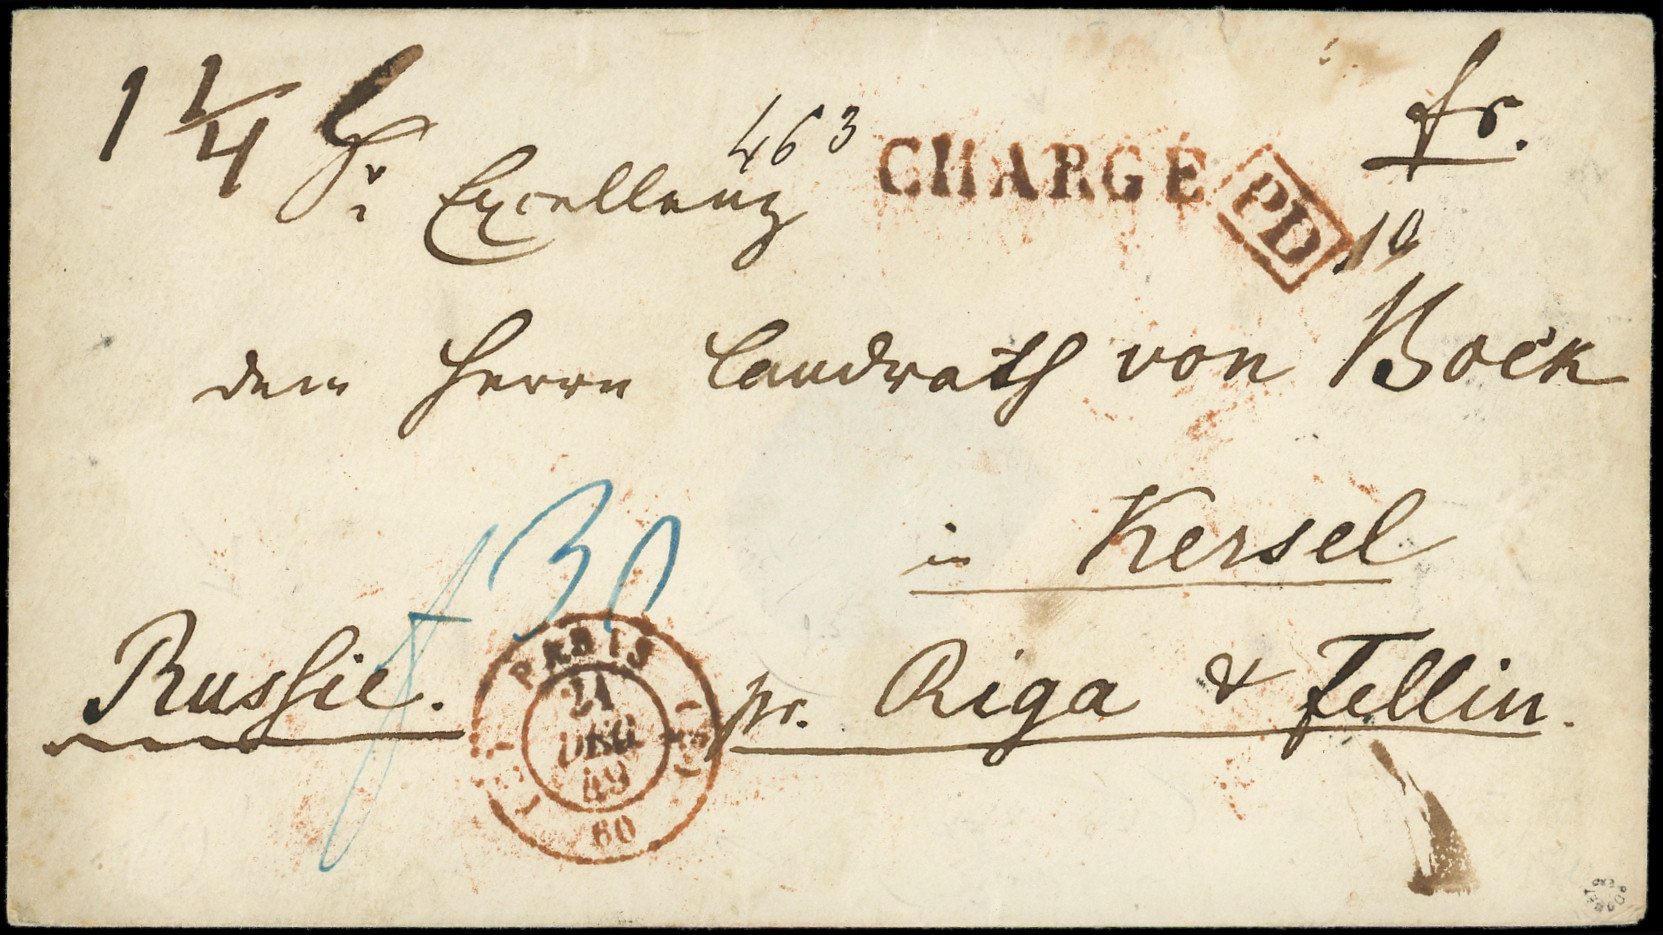 1 1/4 L
463
CHARGÉ
PD
fr.
Sr Excellenz
10
dem Herrn Landrath von Bock
in Kersel
f 30
Russie.
pr. Riga & Fellin.
PARIS
21
DEC
49
60